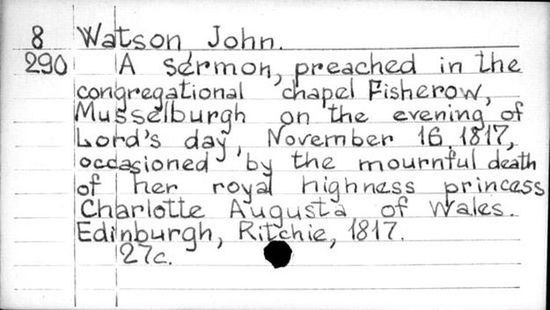 8 Watson, John.
290 A sermon, preached in the
congregational chapel Fisherow,
Musselburgh on the evening of
Lord's day, November 16, 1817,
occasioned by the mournful death
of her royal highness princess
Charlotte Augusta of Wales.
Edinburgh, Ritchie, 1817.
27c.